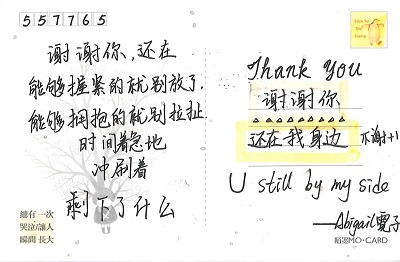 557765
谢谢你,还在
能够握紧的就别放了,
能够拥抱的就别拉扯
时间着急地
冲刷着
剩下了什么
總有一次
哭泣/讓人
瞬間 長大
Thank you
谢谢你
还在我身边 不谢+1
U still by my side
—Abigail
MO·CARD